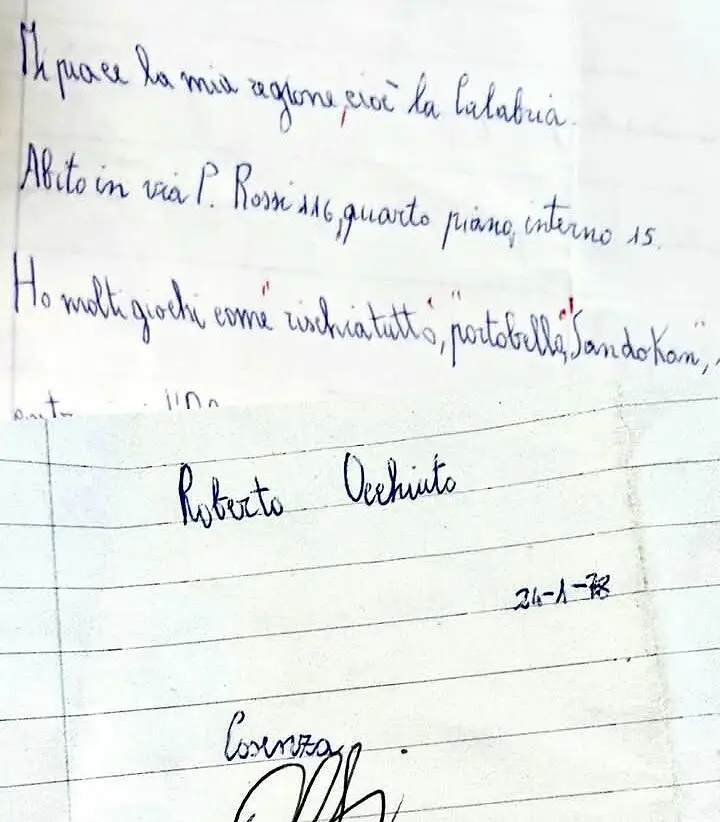 Mi piace la mia regione, cioè la Calabria.
Abito in via P. Rossi 116, quarto piano, interno 15.
Ho molti giochi come "rischiatutto", "portobello", "Sandokan",
Roberto Occhiuto
24-1-78
Cosenza